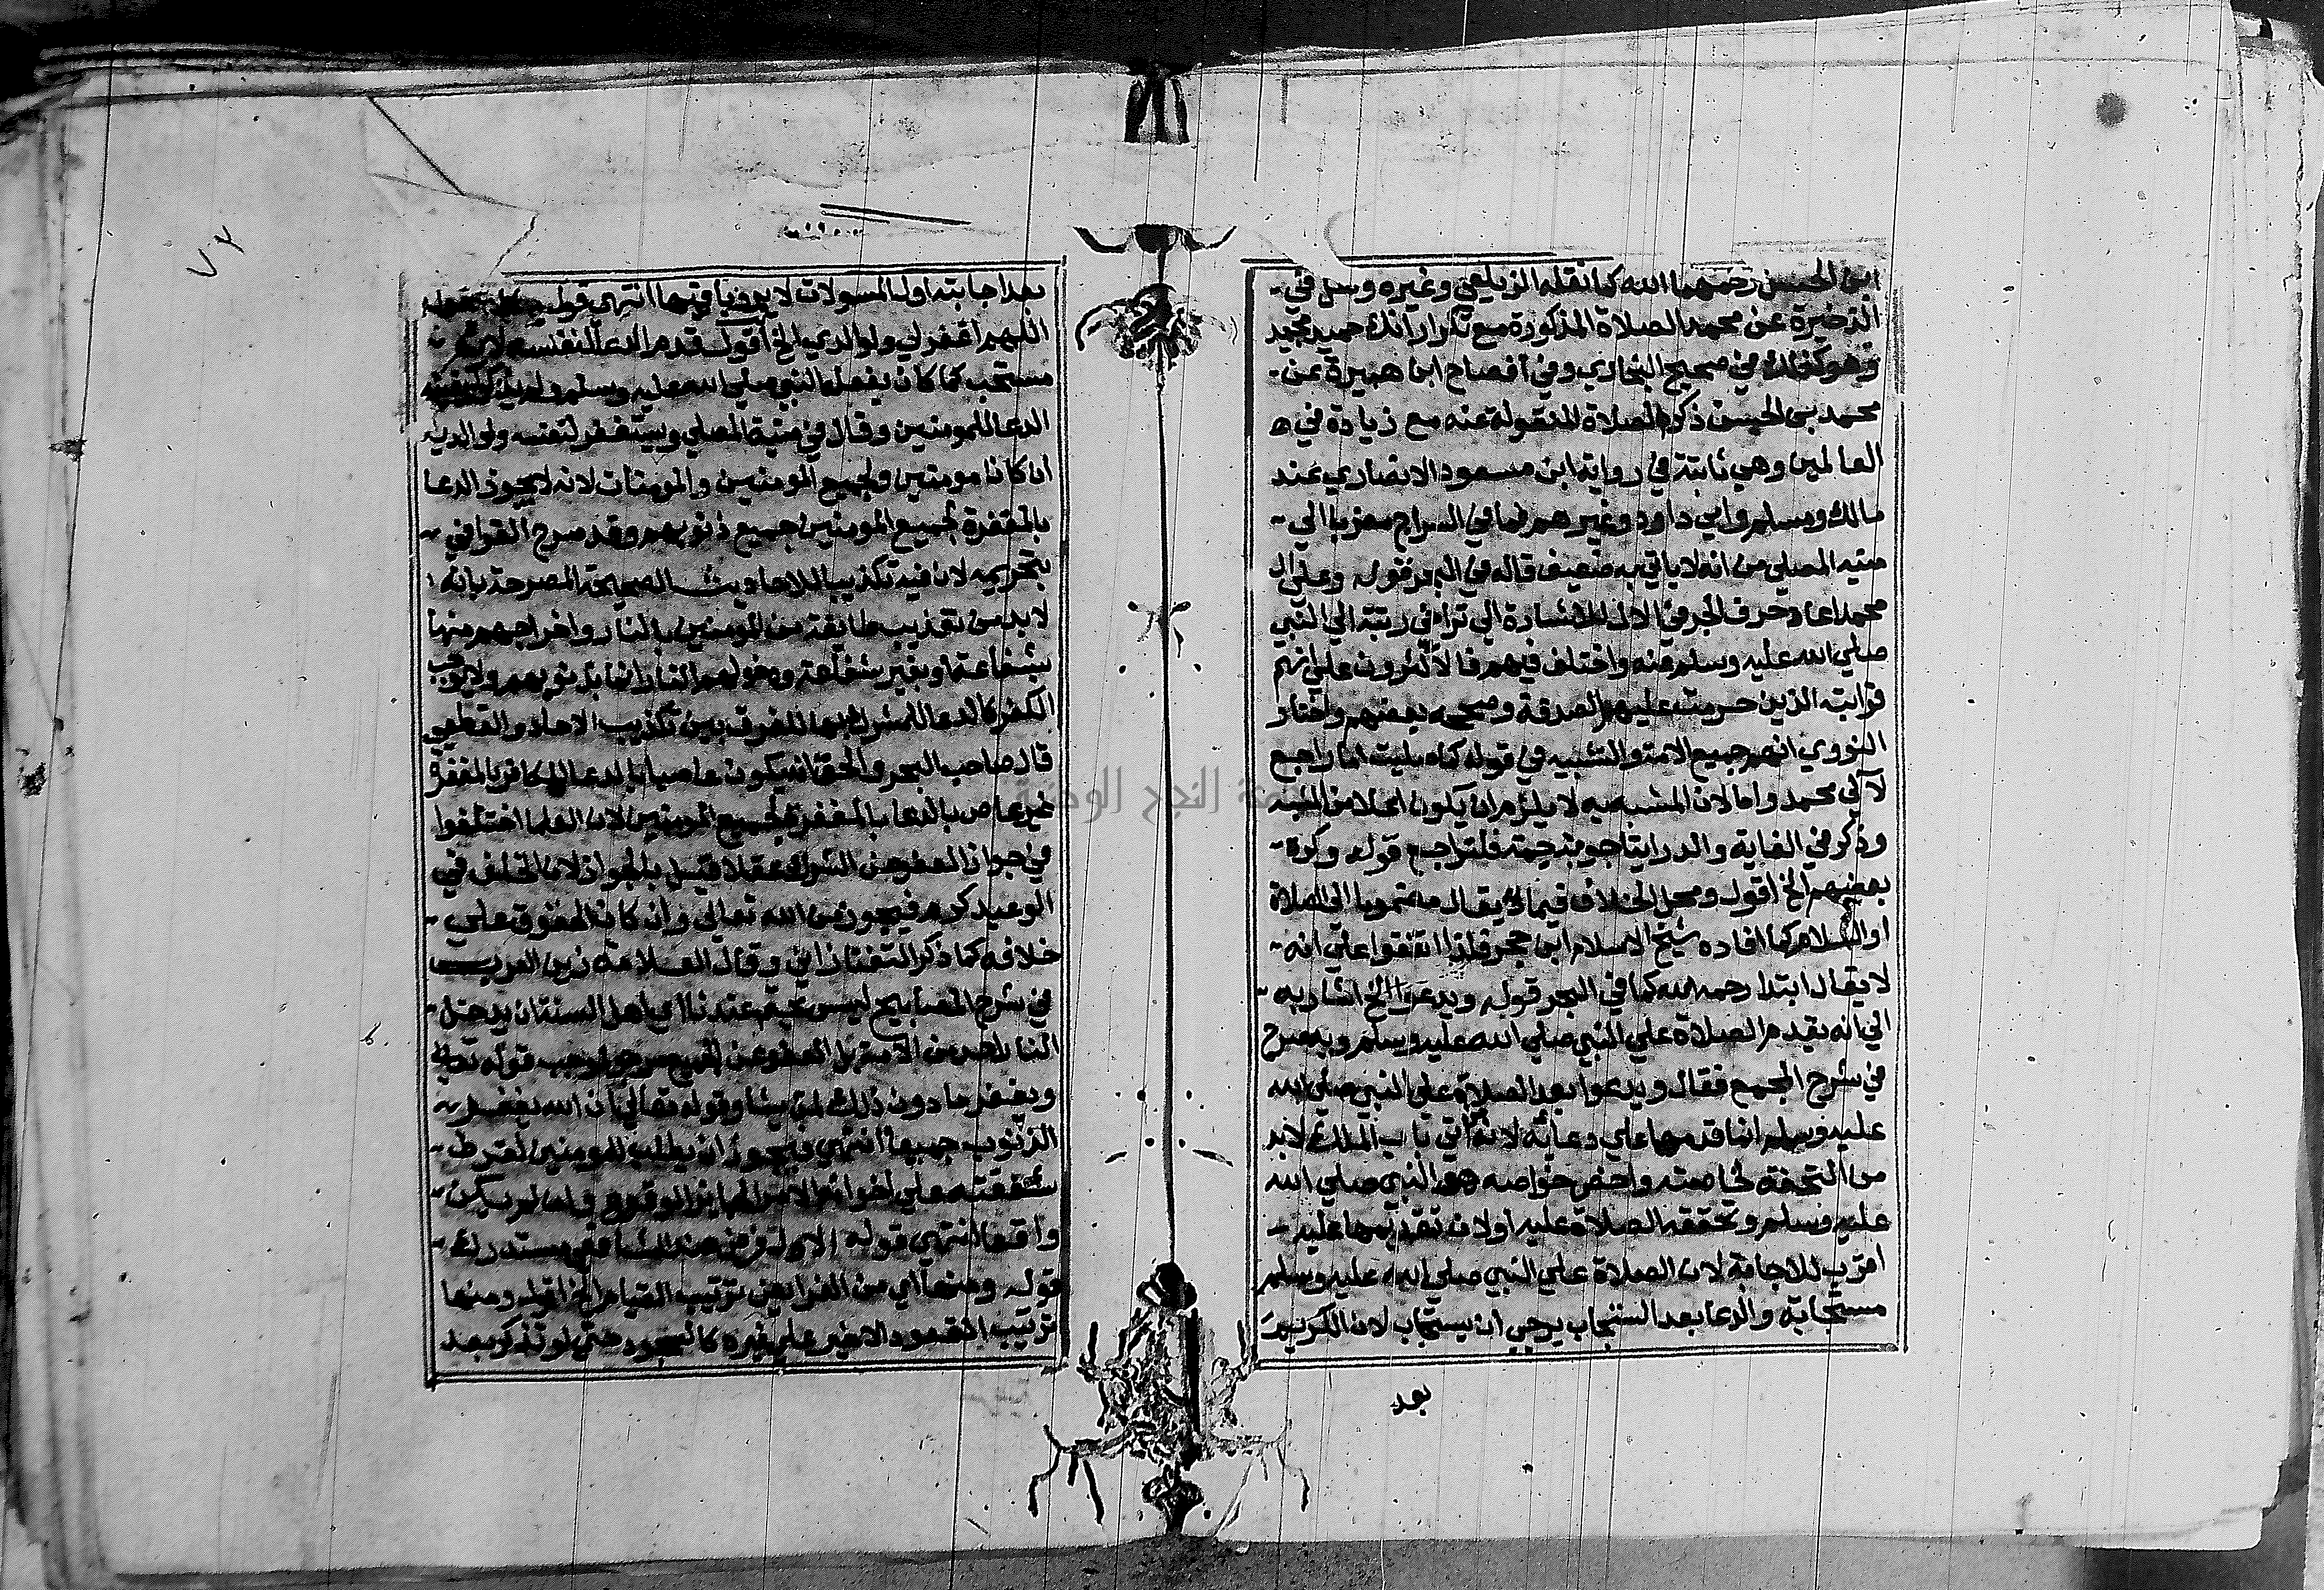 ابن الحسن رحمهما الله كما نقله الزيلعي وغيره وسل في
الذخيرة عن محمد الصلاة المذكورة مع تكرار انك حميد مجيد
وهو كذلك في صحيح البخاري وفي افصاح ابن هبيرة عن
محمد بن الحسن ذكر الصلاة المنقولة عنه مع زيادة في
العالمين وهي ثابتة في رواية ابن مسعود الانصاري عند
مالك ومسلم وابي داود وغيرهم فما في السراج معزيا الي
منية المصلي من انه لا ياتي به ضعيف قاله في البحر قوله وعلي ال
محمد اعاد حرف الجر في الال للاشارة الي تراخي رتبة الي النبي
صلي الله عليه وسلم عنه واختلف فيهم فالاكثرون علي انهم
قرابته الذين حرمت عليهم الصدقة وصححه بعضهم واختار
النووي انهم جميع الامة والتشبيه في قوله كما صليت اما راجع
لآل محمد واما لان المشبه به لا يلزم ان يكون اعلا من المشبه
وذكر في الغاية والدراية اجوبة جمة فلتراجع قوله وكره
بعضهم الخ اقول ومحل الخلاف فيما يقال مضموما الي الصلاة
او السلام كما افاده شيخ الاسلام ابن حجر فلذا اتفقوا علي انه
لا يقال ابتدا رحمه الله كما في البحر قوله ويدعو الخ اشار به
الي انه يقدم الصلاة علي النبي صلي الله عليه وسلم وبه صرح
في شرح المجمع فقال ويدعوا بعد الصلاة علي النبي صلي الله
عليه وسلم انما قدمها علي دعائه لانه اتي باب الملك لابد
من التحفة لخاصته واخص خواصه هو النبي صلي الله
عليه وسلم وتحفته الصلاة عليه اولان تقديمها عليه
اقرب للاجابة لان الصلاة علي النبي صلي الله عليه وسلم
مستجابة والدعا بعد المستجاب يرجي ان يستجاب لان الكريم
بعد
٧٢
بعد اجابته اول المسولات لا يرد باقيها انتهي قوله
اللهم اغفر لي ولوالدي الخ اقول قدم الدعا لنفسه لانه
مستحب كما كان يفعله النبي صلي الله عليه وسلم
الدعا للمومنين وقال في منية المصلي ويستغفر لنفسه ولوالديه
ان كانا مومنين ولجميع المومنين والمومنات لانه لا يجوز الدعا
بالمغفرة لجميع المومنين جميع ذنوبهم وقد صرح القرافي
بتحريمه لان فيه تكذيبا للاحاديث الصحيحة المصرحة بانه
لا بد من تعذيب طايفة من المومنين بالنار واخراجهم منها
بشفاعة او بغير شفاعة ودخولهم النار انما بذنوبهم ولا يوجب
الكفر كالدعا للمشرك بها للفرق بين تكذيب الاحاد والقطعي
قال صاحب البحر والحق انه يكون عاصيا بالدعا للكافر بالمغفرة
غير عاص بالدعا بالمغفرة لجميع المومنين لان العلما اختلفوا
في جواز العفو عن الشرك عقلا قيل بالجواز لان الخلف في
الوعيد كرم فيجوز من الله تعالي وان كان المحققون علي
خلافه كما ذكر التفتازاني وقال العلامة زين العرب
في شرح المصابيح ليس بحتم عندنا اي اهل السنة ان يدخل
النار احد من الامة بل العفو عن الجميع مرجو لموجب قوله تعالي
ويغفر ما دون ذلك لمن يشا وقوله تعالي ان الله يغفر
الذنوب جميعا انتهي فيجوز ان يطلب للمومنين لفرط
شفقته علي اخوانه الامر الجايز الوقوع وان لم يكن
واقعا انتهي قوله الاول فرض عند الشافعي مستدرك
قوله ومنها اي من الفرايض ترتيب القيام الخ اقول ومنها
ترتيب القعود الاخير علي غيره كالسجود حتي لو تذكر بعد